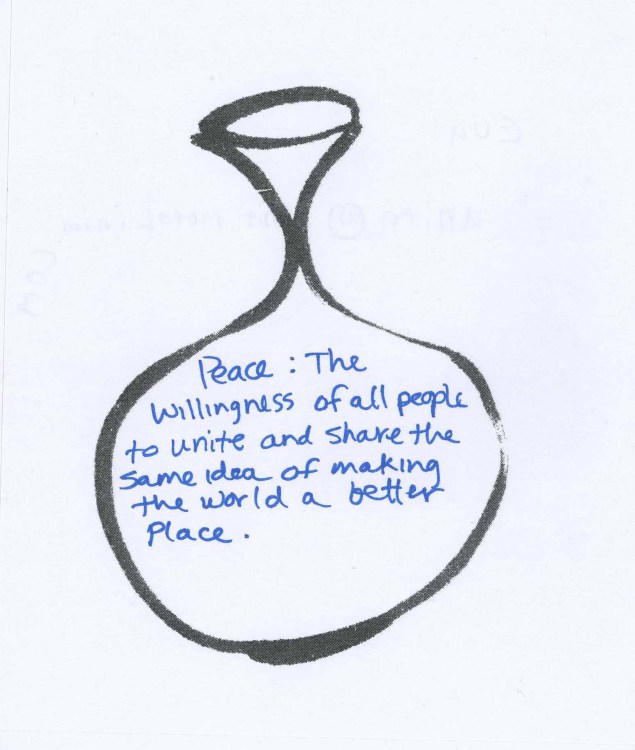 Peace : The
willingness of all people
to unite and share the
same idea of making
the world a better
place.